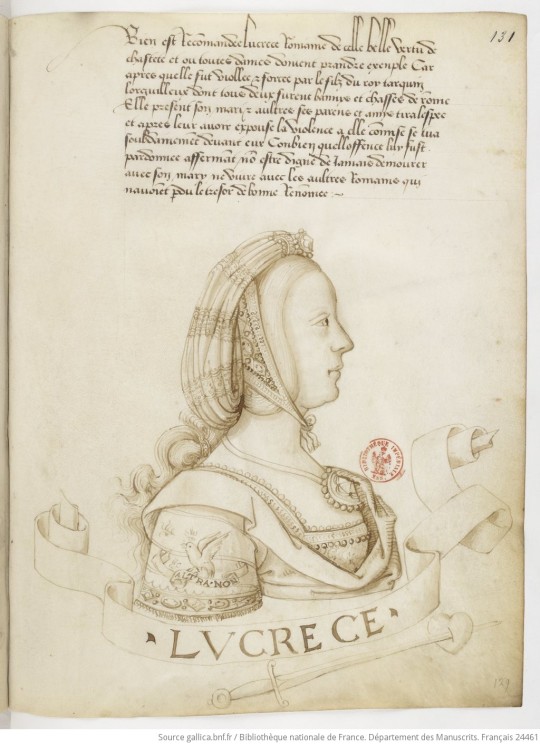 131
Bien est Recomandee Lucrece Romaine de celle belle vertu de
chastete et ou toutes dames doiuent prandre exemple Car
apres quelle fut viollee & forcee par le filz du roy tarquin
lorguilleux dont tous deux furent bannys et chasses de rome
Elle present son mary & aultres ses parens et amys tira lespee
et apres leur auoir expouse la violence a elle comise se tua
soubdainement deuant eux Conbien quelloffence luy fust
pardonnee affermant nō estre digne de Jamais demourer
auec son mary ne viure auec les aultres Romains qui
nauoiēt pdu le tresor de bonne Renomee :~
NON
·LVCRECE·
Source gallica.bnf.fr / Bibliothèque nationale de France. Département des Manuscrits. Français 24461